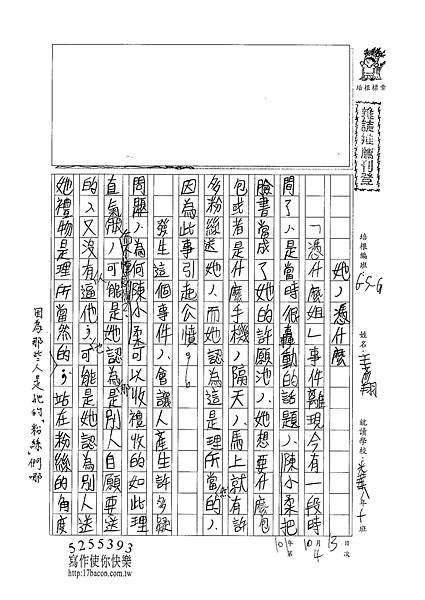 培根標章
雜誌推薦刊登
培根編班 G5-G 姓名 王 翔 就讀學校 年十班
10年10月4日
第3次
她，憑什麼
「憑什麼姐」事件離現今有一段時
間了，是當時很轟動的話題，陳小柔把
臉書當成了她的許願池，她想要什麼包
包或者是什麼手機，隔天，馬上就有許
多粉絲送她，而她認為這是理所當的，
因為此事引起公憤。
發生這個事件，會讓人產生許多疑
問題，為何陳小柔可以收禮收的如此理
直氣服，可能是她認為是別人自願要送
的，又沒有逼他，可能是她認為別人送
她禮物是理所當然的，站在粉絲的角度
因為那些人是他的"粉絲"們那
5255393
寫作使你快樂
http://17bacon.com.tw